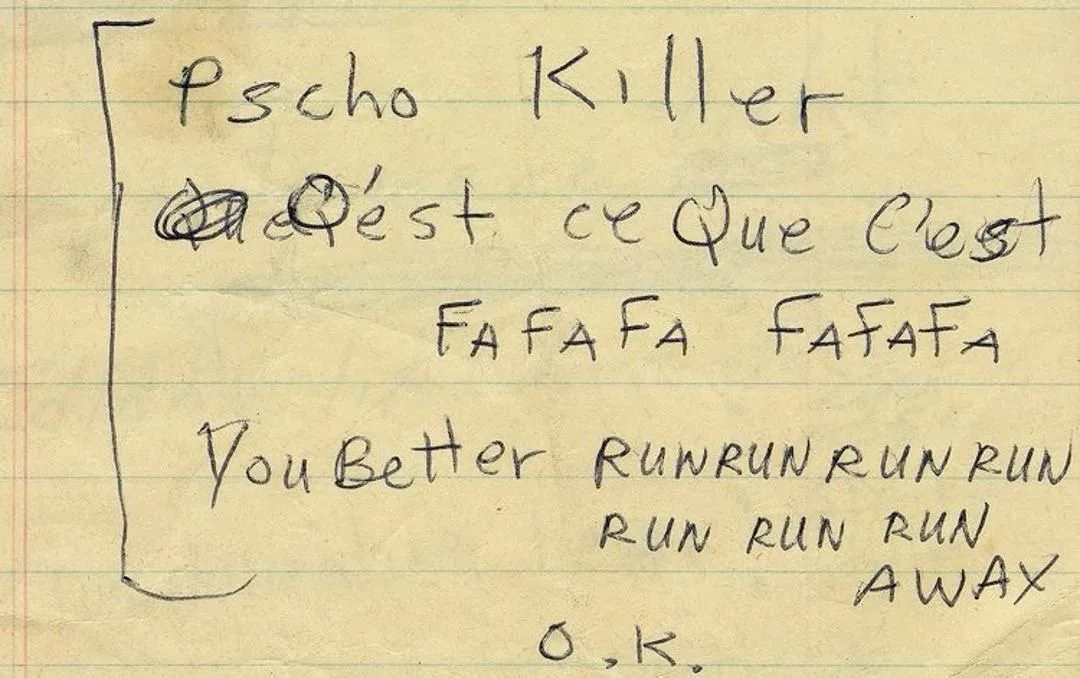 Pscho Killer
Q'est ce Que C'est
FA FA FA FAFAFA
You Better RUNRUN RUN RUN
RUN RUN RUN
AWAY
O.K.